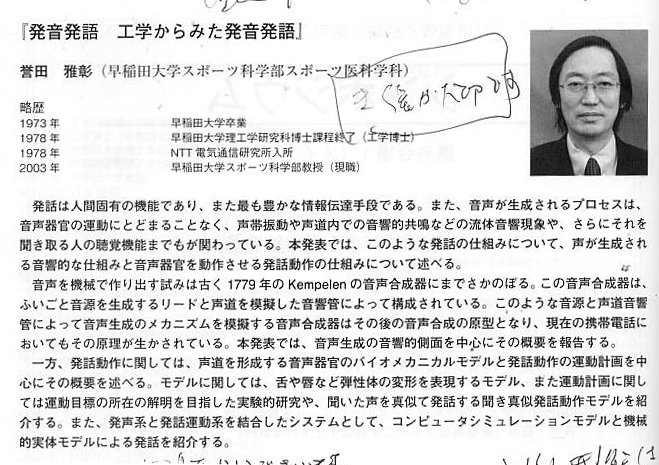 『発音発語　工学からみた発音発語』
誉田　雅彰（早稲田大学スポーツ科学部スポーツ医科学科）
略歴
1973 年　早稲田大学卒業
1978 年　早稲田大学理工学研究科博士課程終了（工学博士）
1978 年　NTT 電気通信研究所入所
2003 年　早稲田大学スポーツ科学部教授（現職）
発話は人間固有の機能であり、また最も豊かな情報伝達手段である。また、音声が生成されるプロセスは、
音声器官の運動にとどまることなく、声帯振動や声道内での音響的共鳴などの流体音響現象や、さらにそれを
聞き取る人の聴覚機能までもが関わっている。本発表では、このような発話の仕組みについて、声が生成され
る音響的な仕組みと音声器官を動作させる発話動作の仕組みについて述べる。
音声を機械で作り出す試みは古く 1779 年の Kempelen の音声合成器にまでさかのぼる。この音声合成器は、
ふいごと音源を生成するリードと声道を模擬した音響管によって構成されている。このような音源と声道音響
管によって音声生成のメカニズムを模擬する音声合成器はその後の音声合成の原型となり、現在の携帯電話に
おいてもその原理が生かされている。本発表では、音声生成の音響的側面を中心にその概要を報告する。
一方、発話動作に関しては、声道を形成する音声器官のバイオメカニカルモデルと発話動作の運動計画を中
心にその概要を述べる。モデルに関しては、舌や唇など弾性体の変形を表現するモデル、また運動計画に関し
ては運動目標の所在の解明を目指した実験的研究や、聞いた声を真似て発話する聞き真似発話動作モデルを紹
介する。また、発声系と発話運動系を結合したシステムとして、コンピュータシミュレーションモデルと機械
的実体モデルによる発話を紹介する。